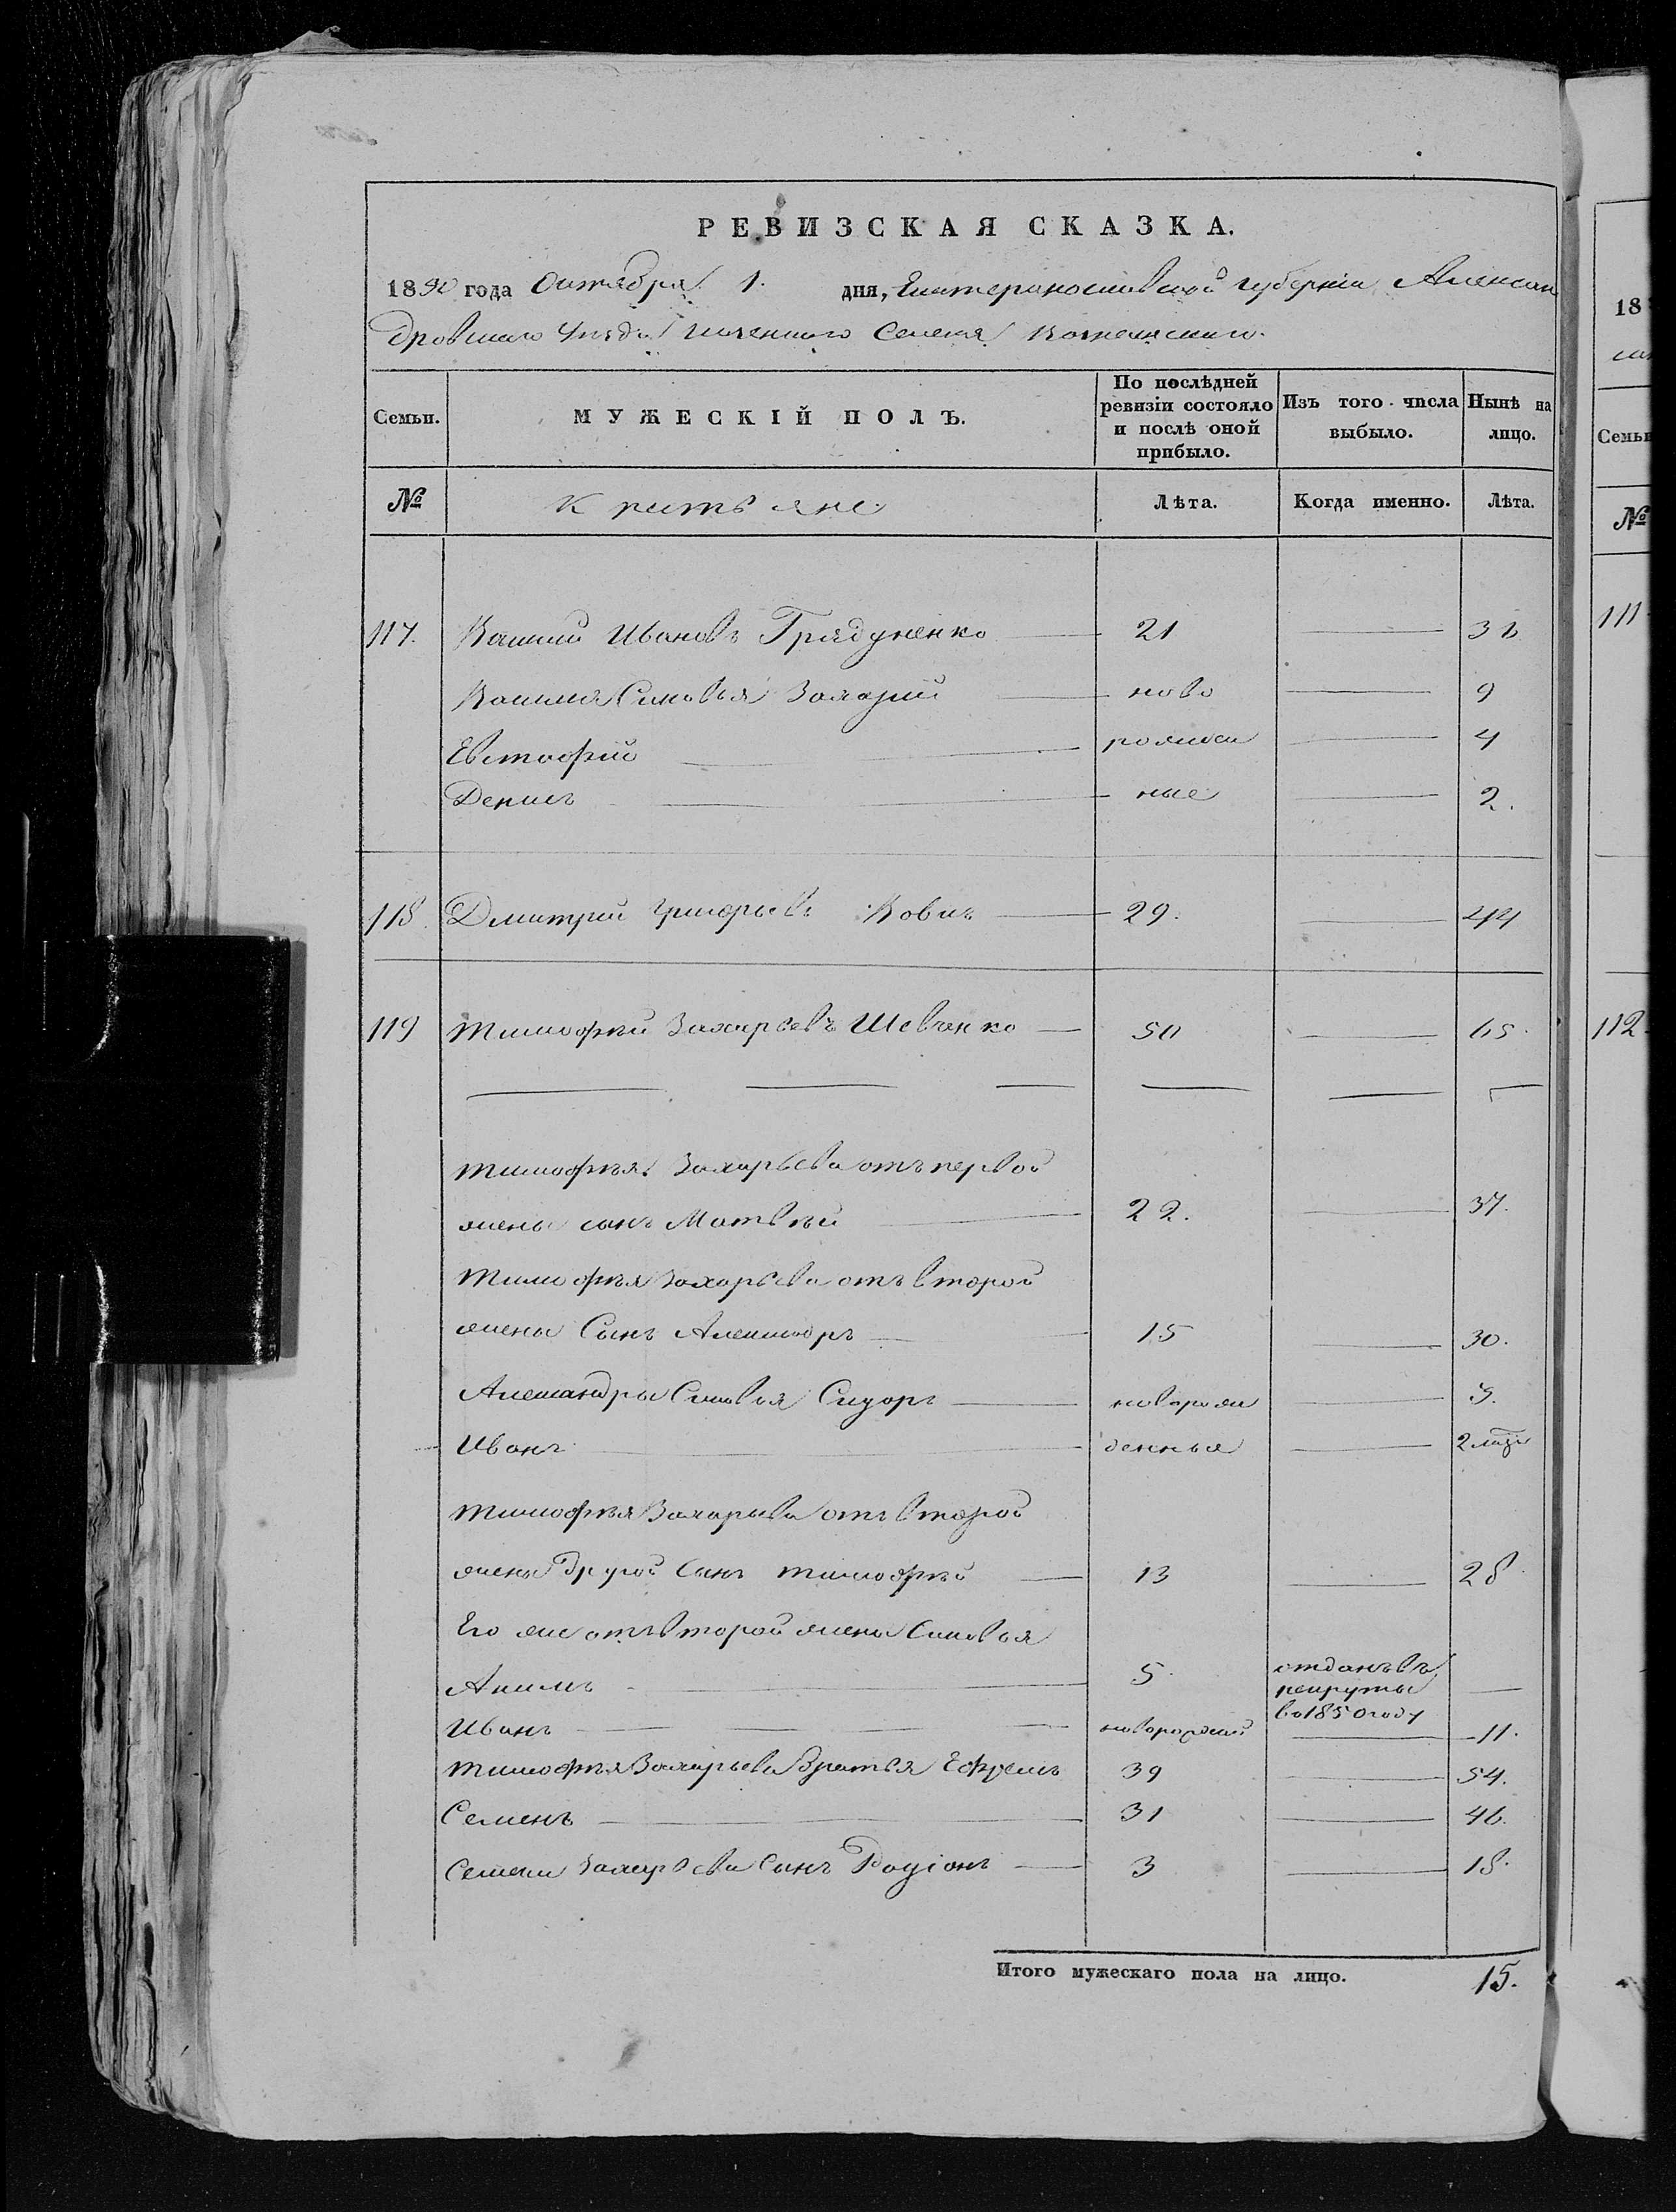 РЕВИЗСКАЯ СКАЗКА.
1850 года Октября 1. дня, Екатеринославской губерніи Алексан
дровскаго Уѣзда казеннаго Селенія
Семьи. МУЖЕСКІЙ ПОЛЪ. По послѣдней ревизіи состояло и послѣ оной прибыло. Изъ того числа выбыло. Нынѣ на лицо.
№ Крестьяне Лѣта. Когда именно. Лѣта.
117. Ивановъ Грядуненко 21 36
Сыновья Захарій ново 9
Евстафій рожден 4
Денисъ ные 2.
118. Дмитрий Григорьевъ 29. 44
119 Тимофѣй Захарьевъ Шевченко 50 65.
Тимофѣя Захарьева отъ первой
жены сынъ Матвѣй 22. 37.
Тимофѣя Захарьева отъ второй
жены Сынъ Александръ 15 30.
Александра Сыновья Сидоръ новорож 3.
Иванъ денныя 2
Тимофѣя Захарьева отъ второй
жены другой Сынъ Тимофѣй 13 28
Его же отъ второй жены Сыновья
Акимъ 5. отданъ въ рекруты во 1850 году
Иванъ 11.
Тимофѣя Захарьева Братья Ефремъ 39 54.
Семенъ 31 46.
Семена Захарьева Сынъ Родіонъ 3 18.
Итого мужескаго пола на лицо. 15.
18
Семьи
№
111
112